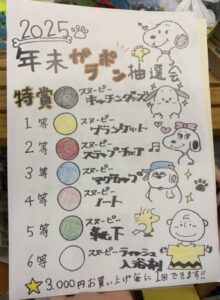 2025
年末ガラポン抽選会
特賞 スヌーピー キッチングッズ
1等 スヌーピー ブランケット
2等 スヌーピー
3等 スヌーピー マグカップ
4等 スヌーピー ノート
5等 スヌーピー 靴下
6等 スヌーピー 入浴剤
☆3,000円お買い上げ毎に1回できます!!